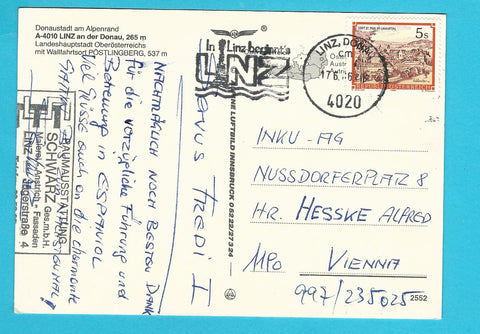 Donaustadt am Alpenrand
A-4010 LINZ an der Donau, 265 m
Landeshauptstadt Oberösterreichs
mit Wallfahrtsort PÖSTLINGBERG, 537 m
In Linz beginnt's
LINZ
LINZ, DONAU
17.6.
4020
5s
REPUBLIK ÖSTERREICH
SERVUS FREDI I
NACHTRÄGLICH NOCH BESTEN DANK
für die vorzügliche Führung und
Betreuung in ESPANIOL
Viel Grüsse auch an die charmante
RAUMAUSSTATTUNG
SCHWARZ
Ges.m.b.H.
Malerei - Anstrich - Fassaden
Linz, Jägerstraße 4
LUFTBILD INNSBRUCK 05222/27324
INKU-AG
NUSSDORFERPLATZ 8
HR. HESSKE ALFRED
VIENNA
997/235025
2552